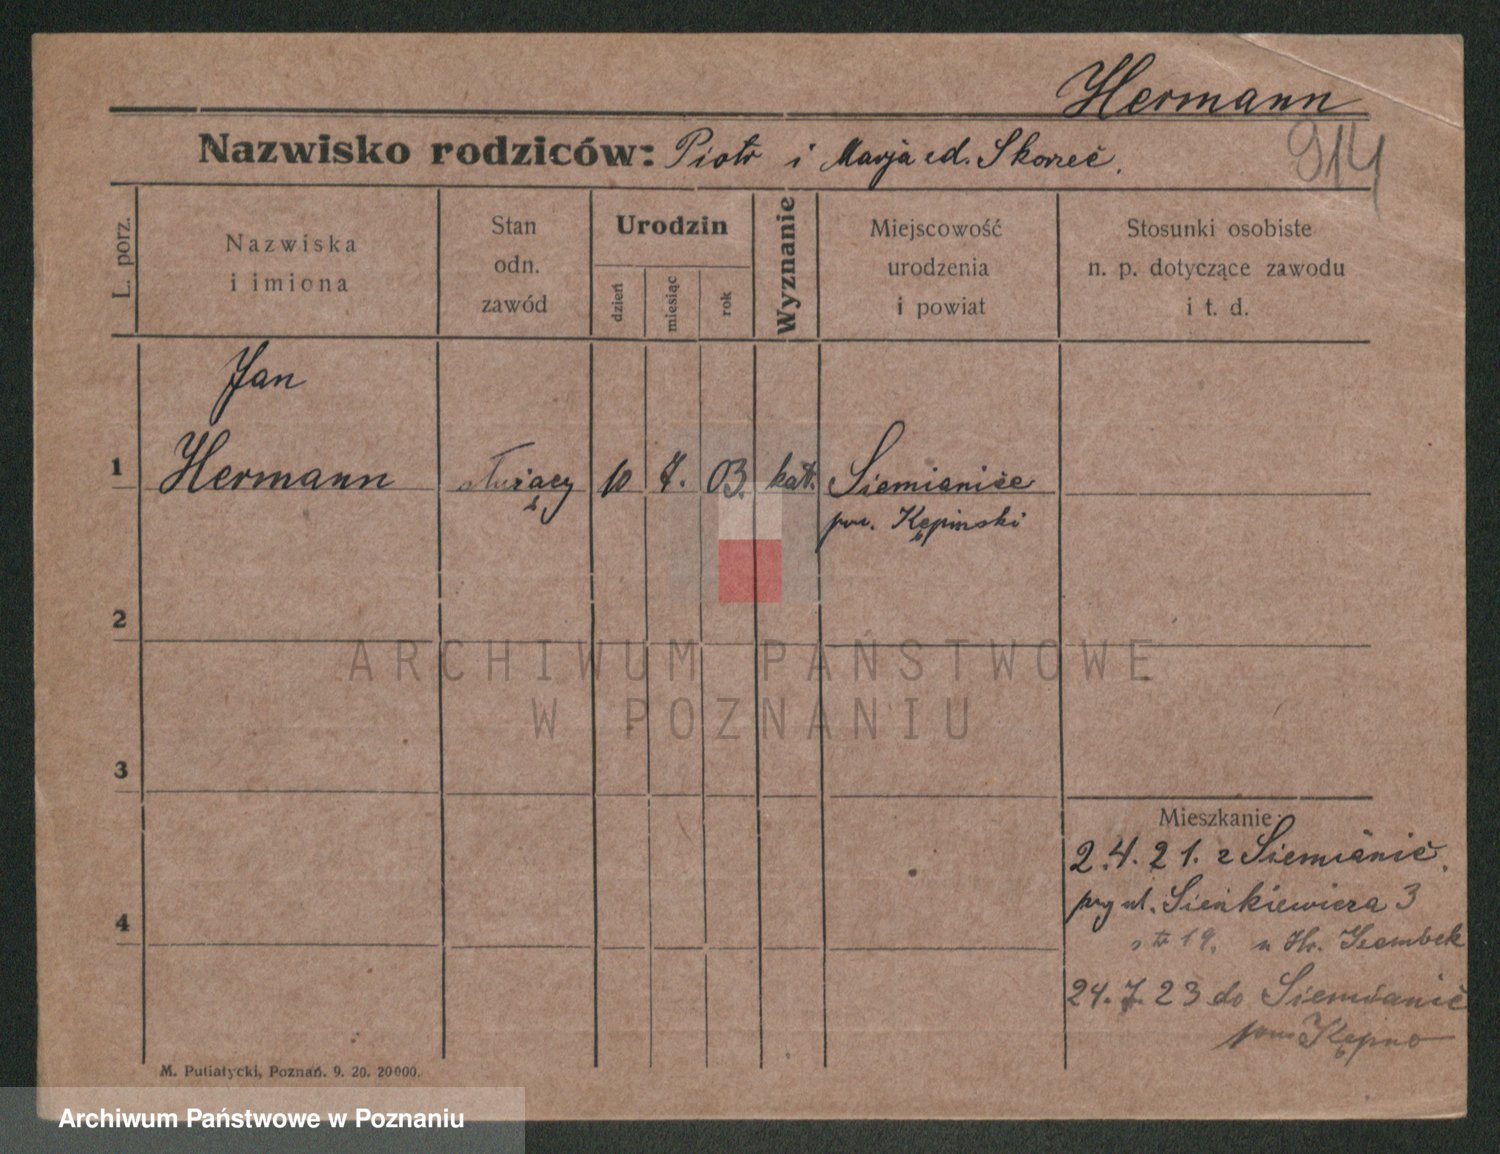 Hermann
914
Nazwisko rodziców: Piotr i Marja zd. Skorzeć.
L. porz.
Nazwiska
i imiona
Stan
odn.
zawód
Urodzin
dzień
miesiąc
rok
Wyznanie
Miejscowość
urodzenia
i powiat
Stosunki osobiste
n. p. dotyczące zawodu
i t. d.
Jan
1 Hermann służący 10 7. 03. kat. Siemianice
pow. Kępiński
2
ARCHIWUM PAŃSTWOWE
W POZNANIU
3
Mieszkanie
2.4.21. z Siemianic.
przy ul. Sienkiewicza 3
19. u Hr.
4
24.7.23 do Siemianic
pow Kępno
M. Putiatycki, Poznań. 9. 20. 20000.
Archiwum Państwowe w Poznaniu